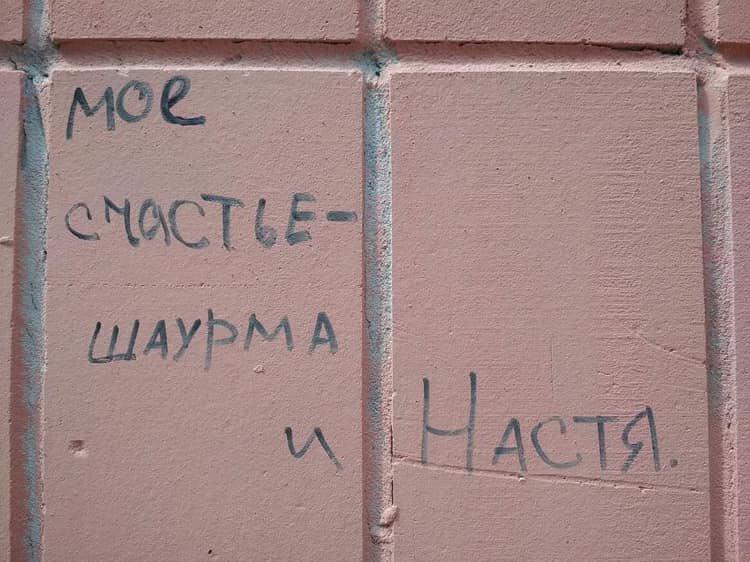 мое
счастье-
шаурма
и Настя.